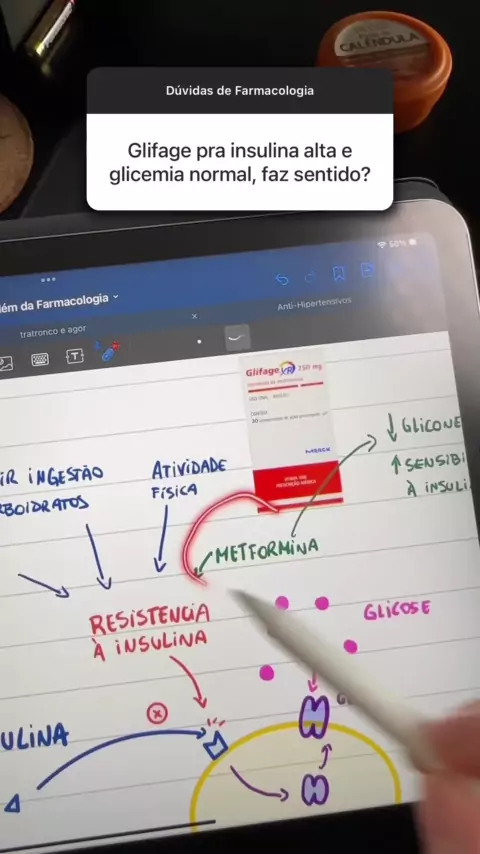 CALÊNDULA
Dúvidas de Farmacologia
Glifage pra insulina alta e
glicemia normal, faz sentido?
50%
ém da Farmacologia
Anti-Hipertensivos
tratronco e agor
T
Glifage XR 750 mg
MERCK
↓ GLICONE
↑ SENSIBI
À INSULI
IR INGESTÃO
RBOIDRATOS
ATIVIDADE
FÍSICA
METFORMINA
RESISTENCIA
À INSULINA
GLICOSE
G
ULINA